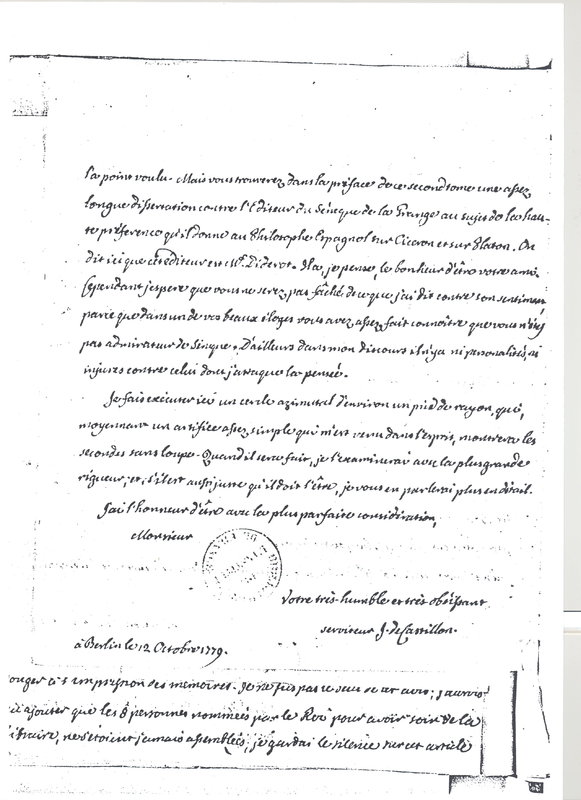 l'a point voulu. Mais vous trouverez dans la préface de ce second tome une assez
longue dissertation contre l'Editeur du Sénèque de la Grange au sujet de la hau-
te préférence qu'il donne au Philosophe Espagnol sur Ciceron et sur Platon. On
dit ici que cet éditeur est Mr. Diderot. Il a, je pense, le bonheur d'être votre ami.
Cependant j'espere que vous ne serez pas fâché de ce que j'ai dit contre son sentiment,
parce que dans un de vos beaux éloges vous avez assez fait connoître que vous n'étiez
pas admirateur de Sénque. D'ailleurs dans mon discours il n'y a ni personalités, ni
injures contre celui dont j'attaque la pensée.
Je fais exécuter ici un cercle azimutal d'environ un pied de rayon, qui,
moyennant un artifice assez simple qui m'est venu dans l'esprit, montrera les
secondes sans loupe. Quand il sera fait, je l'examinerai avec la plus grande
rigueur; et, s'il est aussi juste qu'il doit l'être, je vous en parlerai plus en détail.
J'ai l'honneur d'être avec la plus parfaite considération,
Monsieur
Votre très-humble et très obéissant
serviteur J. de Castillon.
à Berlin le 12 Octobre 1779.
onger à l'impression des mémoires. Je ne fus pas le seul de cet avis; j'aurois
ajouter que les 8 personnes nommées par le Roi pour avoir soin de la
ibraire, ne s'etoient jamais assemblées; je gardai le silence sur cet article